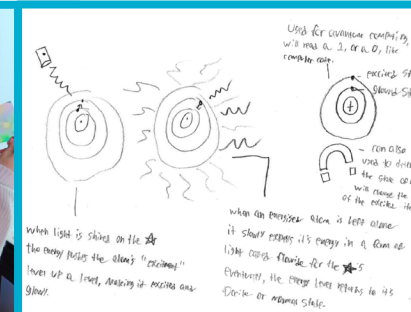 Used for quantum computing,
will read a 1, or a 0, like
computer code.
excited
ground
+
can also
used to
the
will change the
of the
when light is shined on the
the energy pushes the atom's "excitement"
level up a level, making it excited and
glowy.
when an energised atom is left alone
it slowly expels it's energy in a form of
light called for the 's
eventually, the energy level returns to it's
or normal state.